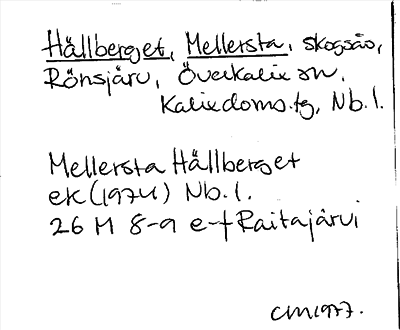 Hällberget, Mellersta, skogsås,
Rönsjärv, Överkalix sn,
Kalix doms.tg, Nb.l.
Mellersta Hällberget
ek (1974) Nb.l.
26 M 8-9 e-f Raitajärvi
CM1977.